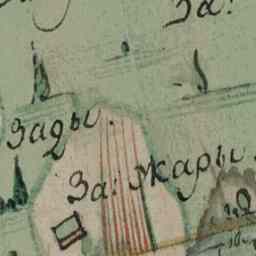 За:
Зады.
За: Жары.